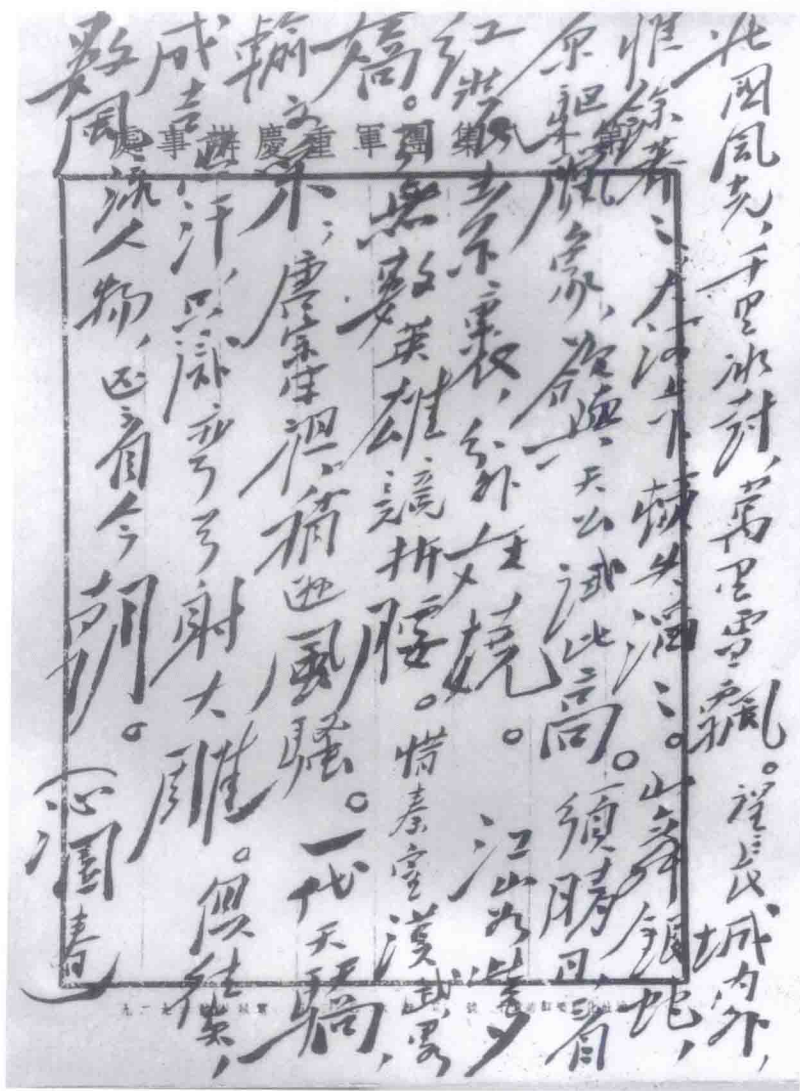 第十八集團軍重慶辦事處
北國風光，千里冰封，萬里雪飄。望長城內外，
惟餘莽〻，大河上下，頓失滔〻。山舞銀蛇，
原驅臘象，欲與天公試比高。須晴日，看
紅裝素裹，分外妖嬈。 江山如此多
嬌。引無數英雄競折腰。惜秦皇漢武，畧
輸文采；唐宗宋祖，稍遜風騷。一代天驕，
成吉思汗，只識彎弓射大雕。俱往矣，
數風流人物，還看今朝。 沁園春